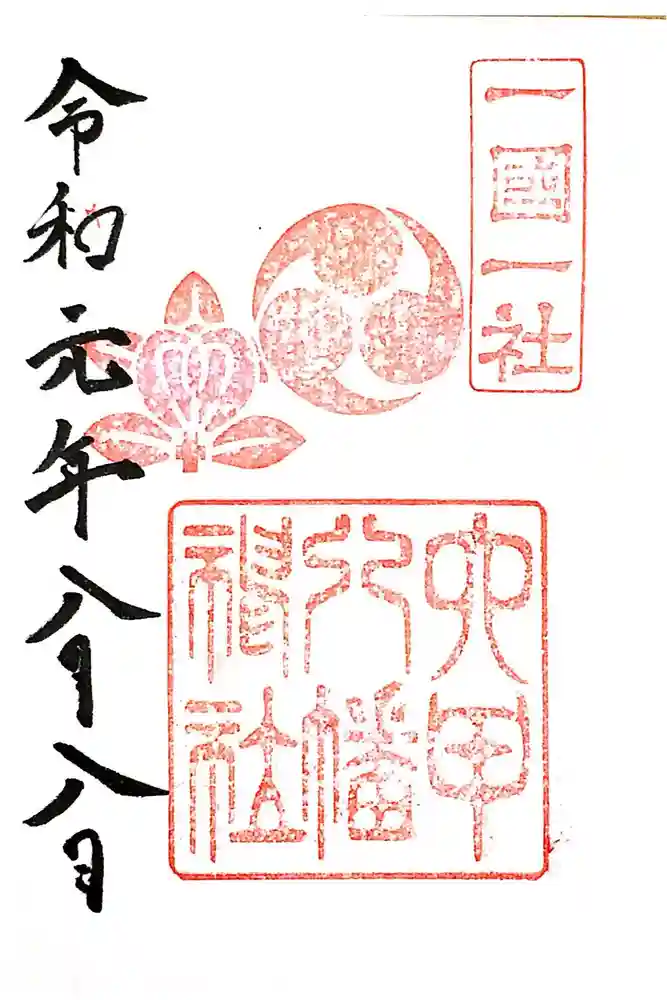 一國一社
六甲
八幡
神社
令和元年八月八日